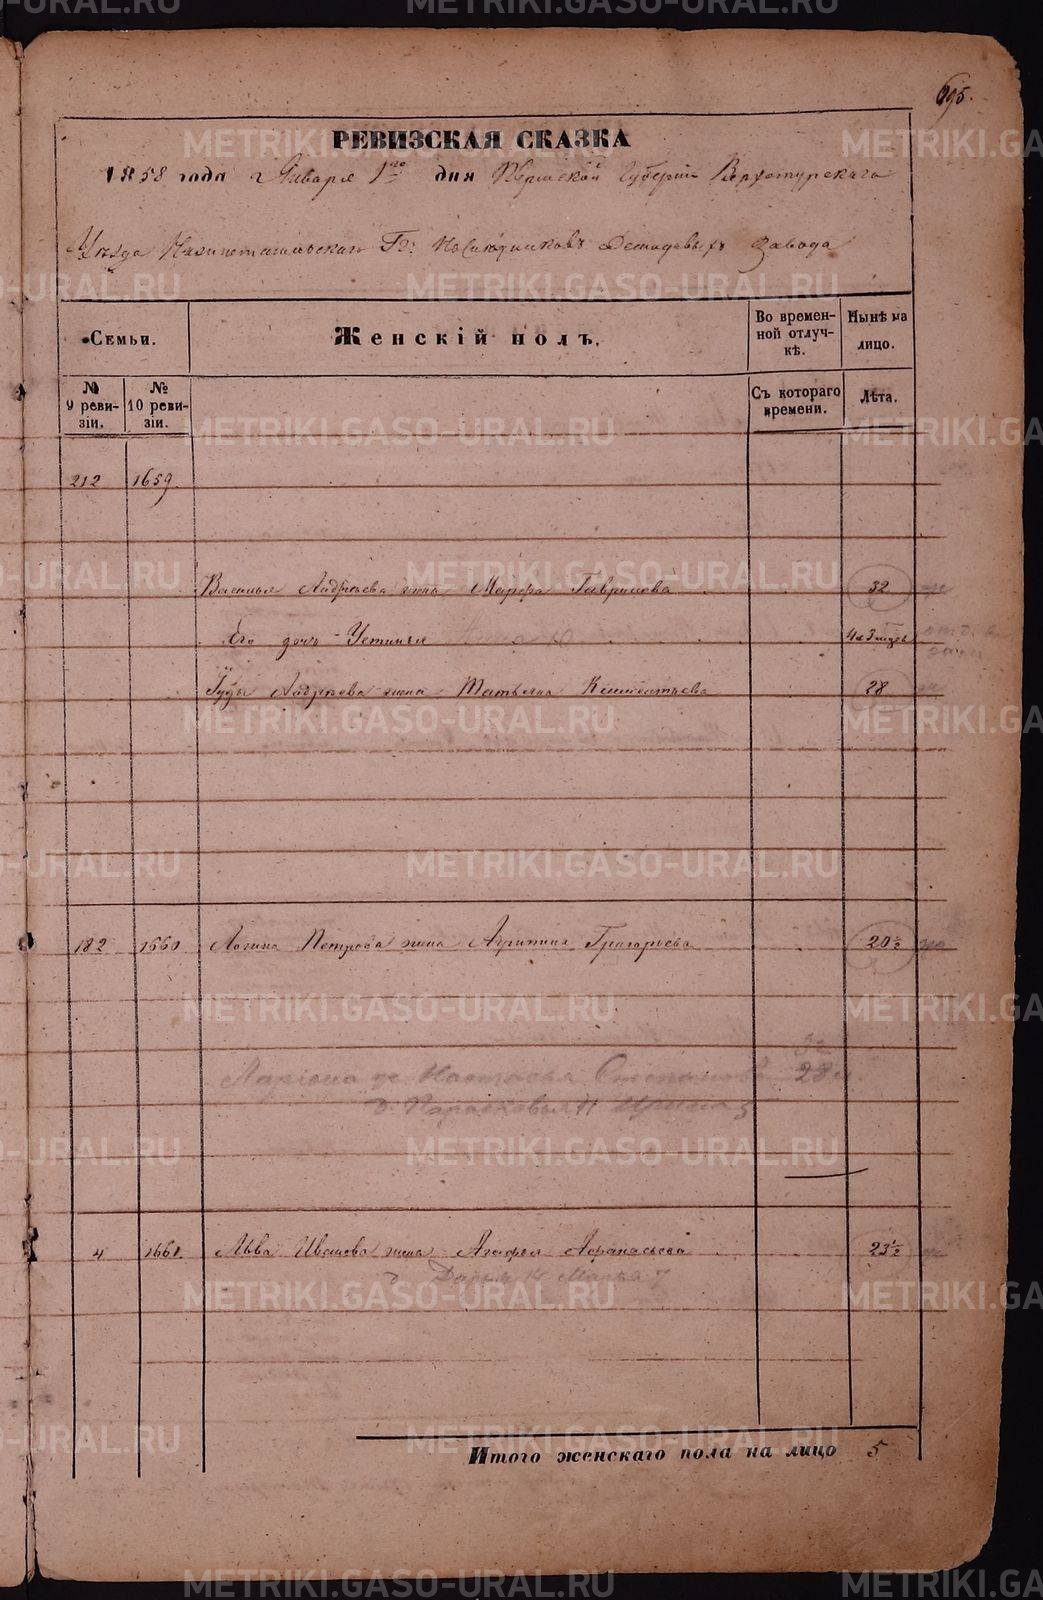 695.
РЕВИЗСКАЯ СКАЗКА
1858 года Января 1го дня Пермской Губерніи Верхотурскаго
Уѣзда Нижнетагильскаго Гг: Наслѣдниковъ Демидовыхъ Завода
Семьи.
Женскій полъ.
Во времен-
ной отлуч-
кѣ.
Нынѣ на
лицо.
№
9 реви-
зіи.
№
10 реви-
зіи.
Съ котораго
времени.
Лѣта.
212 1659.
Василья Андреева жена Марфа Гаврилова 32
Его дочь Устинья
Андреева жена Татьяна 28
182 1660 Логина Петрова жена Агрипина Григорьева 20½
32
Ларіона Настасья Степанова 28
д. Парасковья 11 Ирина 5
4 1661. Льва Иванова жена Агафья Афанасьева 23½
Дарья Марья 7
Итого женскаго пола на лицо 5
METRIKI.GASO-URAL.RU